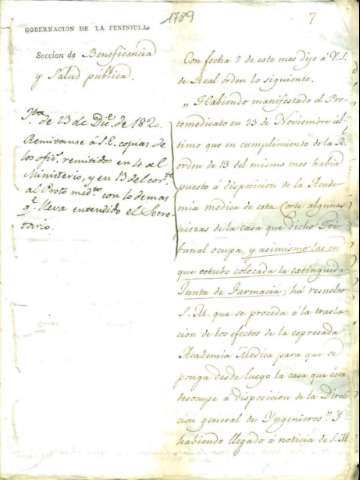 1789
7
GOBERNACION DE LA PENINSULA
Seccion de Beneficencia
y Salud pública.
Jta. de 23 de Dic.e de 182
Remitanse á S.E. copias de
los ofi.s remitidos en 4 al
Ministerio, y en 13 del cor.te
al Proto med.to con lo demas
q.e lleva entendido el Secre
tario.
Con fecha 7 de este mes dije á V.S.
de Real orden lo siguiente.
"Habiendo manifestado el Pro-
tomedicato en 23 de Noviembre úl-
timo que en cumplimiento de la R.l
orden de 13 del mismo mes habia
puesto á disposicion de la Acade-
mia medica de esta Corte algunas
piezas de la casa que dicho Tri-
bunal ocupa, y asimismo las en
que estubo colocada la extinguida
Junta de Farmacia; há resuelto
S.M. que se proceda á la trasla-
cion de los efectos de la expresada
Academia Medica para que se
ponga desde luego la casa que esta
desocupe á disposicion de la Direc-
cion general de Yngenieros." Y
habiendo llegado á noticia de S.M.